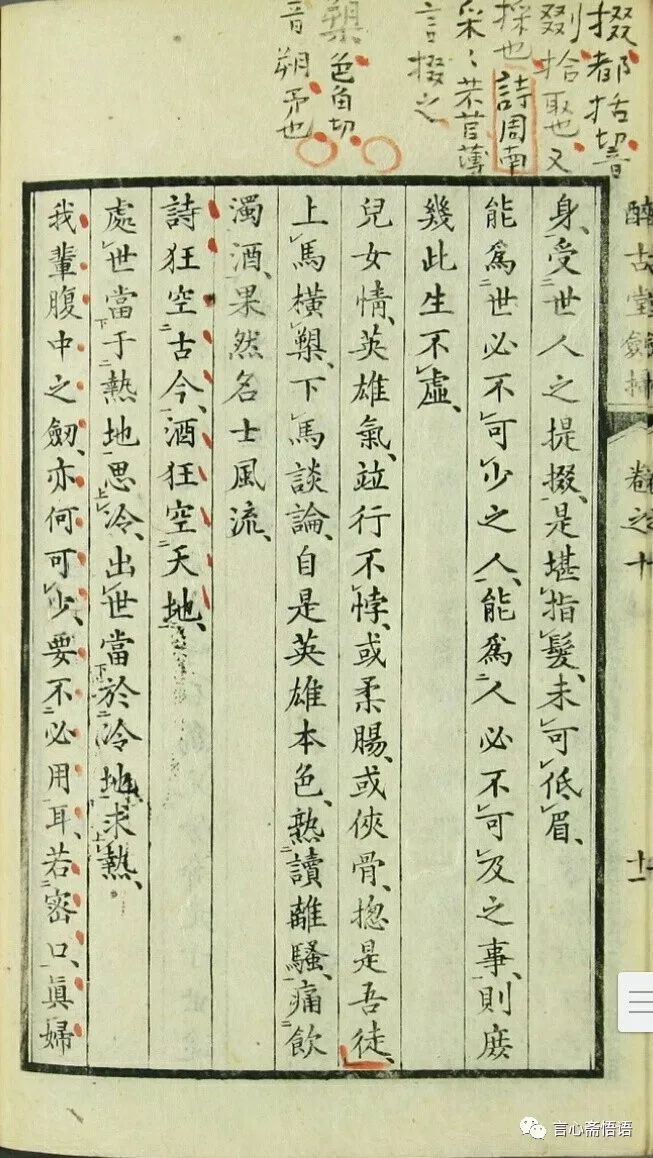 掇都括切音
剟拾取也又
採也詩周南
采〻芣苢薄
言掇之
槊色角切
音朔矛也
醉古堂劍掃 卷之十 十一
身受世人之提掇是堪指髮未可低眉
能爲世必不可少之人能爲人必不可及之事則庶
幾此生不虛
兒女情英雄氣竝行不悖或柔腸或俠骨揔是吾徒
上馬橫槊下馬談論自是英雄本色熟讀離騷痛飲
濁酒果然名士風流
詩狂空古今酒狂空天地
處世當于熱地思冷出世當於冷地求熱
我輩腹中之劒亦何可少要不必用耳若密口眞婦
言心斋悟语